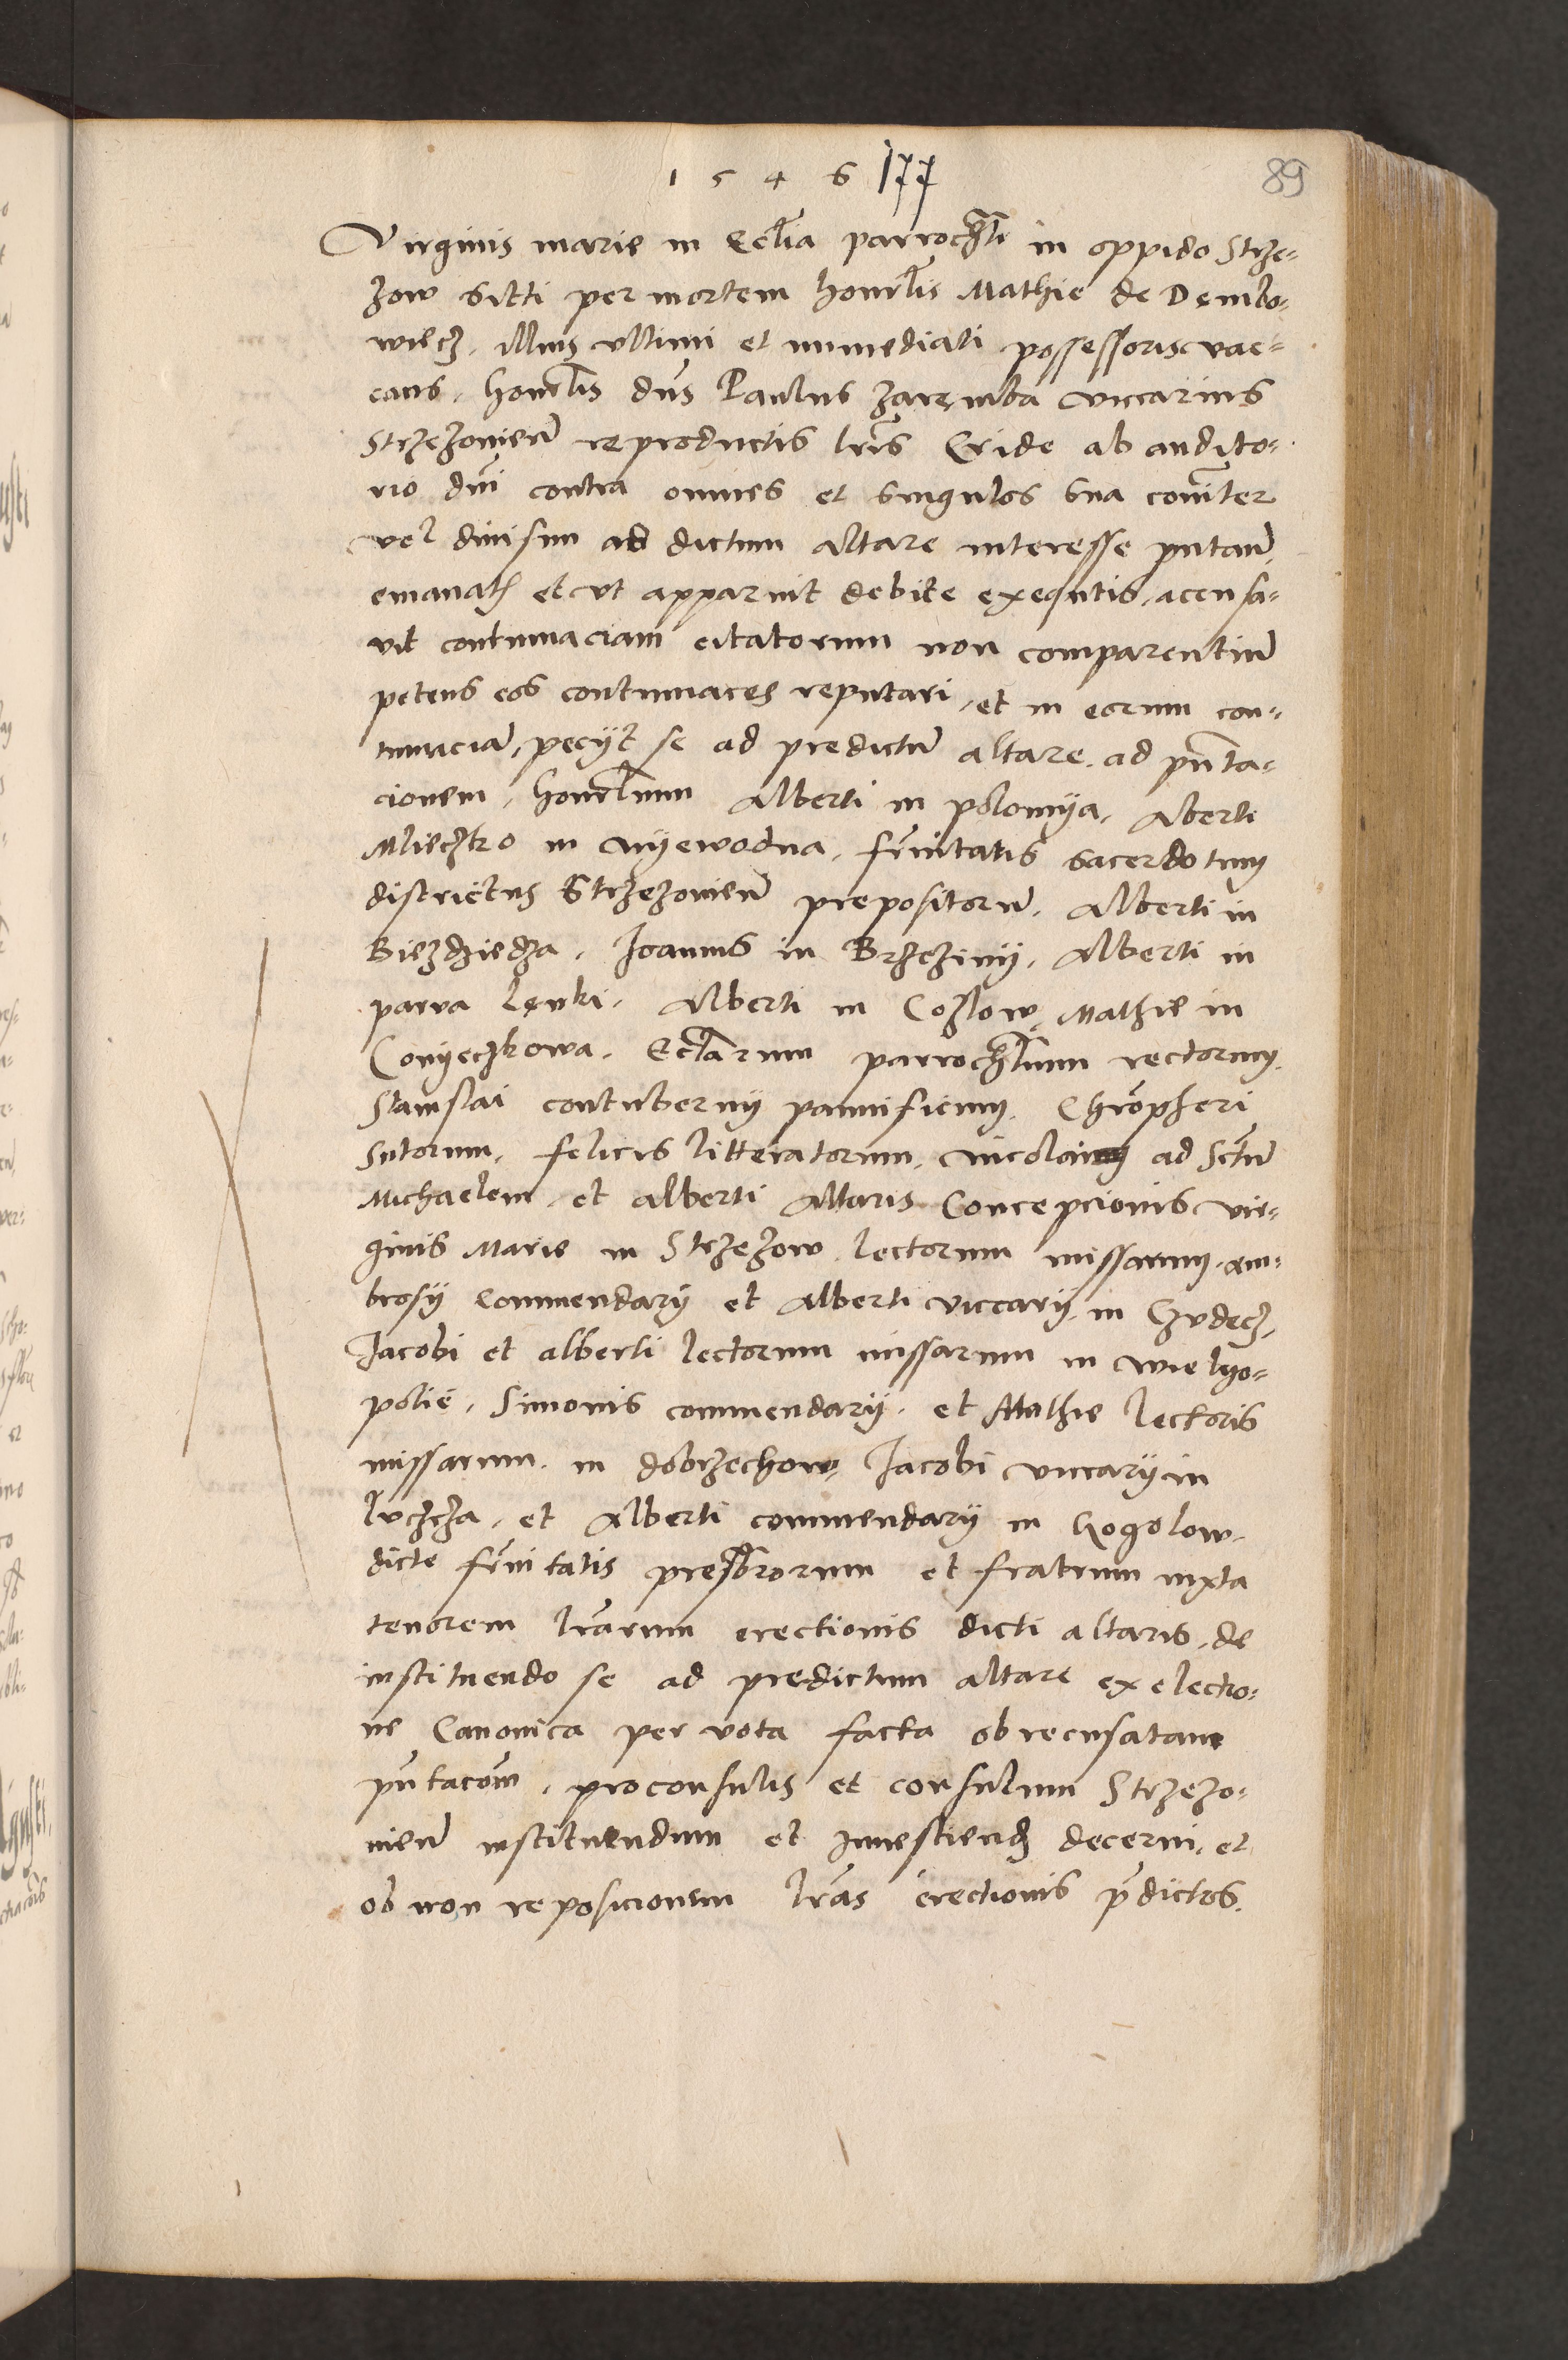 1 5 4 6 177
89
Virginis marie in Ecclia parrochli in oppido Strze-
zow sitti per mortem honorlis Mathie de Dembo-
wiecz, illius vltimi et immediati possessoris vac-
cans, honorlis dns Paulus Zaremba viccarius
Strzezowien reproductis lris Cride ab audito-
rio dni contra omnes et singulos sua coniter
vel diuisim ad dictum altare interesse putan
emanat et vt apparuit debite exequtis, accusa-
uit contumaciam citatorum non comparentium
petens eos contumaces reputari, et in eorum con-
tumaciam, pecijt se ad predictum altare ad pnta-
cionem, honorlium Alberti in polomya, Alberti
Mleczko in nyewodna, frnitatis sacerdotum
districtus Strzezowien prepositorum, Alberti in
Biezdziedza, Joannis in Brzeziny, Alberti in
parua Lenki, Alberti in Cozlow, Mathie in
Conyeczkowa, Ecclarum parrochlium rectorum,
Stanislai contubernij pannificum, Chrophori
sutorum, felicis litteratorum, Nicolai ad Sctum
Michaelem, et alberti altaris Concepcionis vir-
ginis Marie in Strzezow lectorum missarum, am-
brosij commendarij et Alberti viccarij in Czudecz,
Jacobi et alberti lectorum missarum in wielgo-
polie, Simonis commendarij, et Mathie lectoris
missarum, in dobrzechow, Jacobi viccarij in
luczcza, et Alberti commendarij in Gogolow,
dicte frnitatis presbrorum et fratrum iuxta
tenorem lrarum erectionis dicti altaris, de
instituendo se ad predictum altare ex electio-
ne Canonica per vota facta ob recusatam
pntacom, proconsulis et consulum Strzezo-
wien instituendum et Inuestiend decerni, et
ob non reposicionem lras erectionis pdictos.